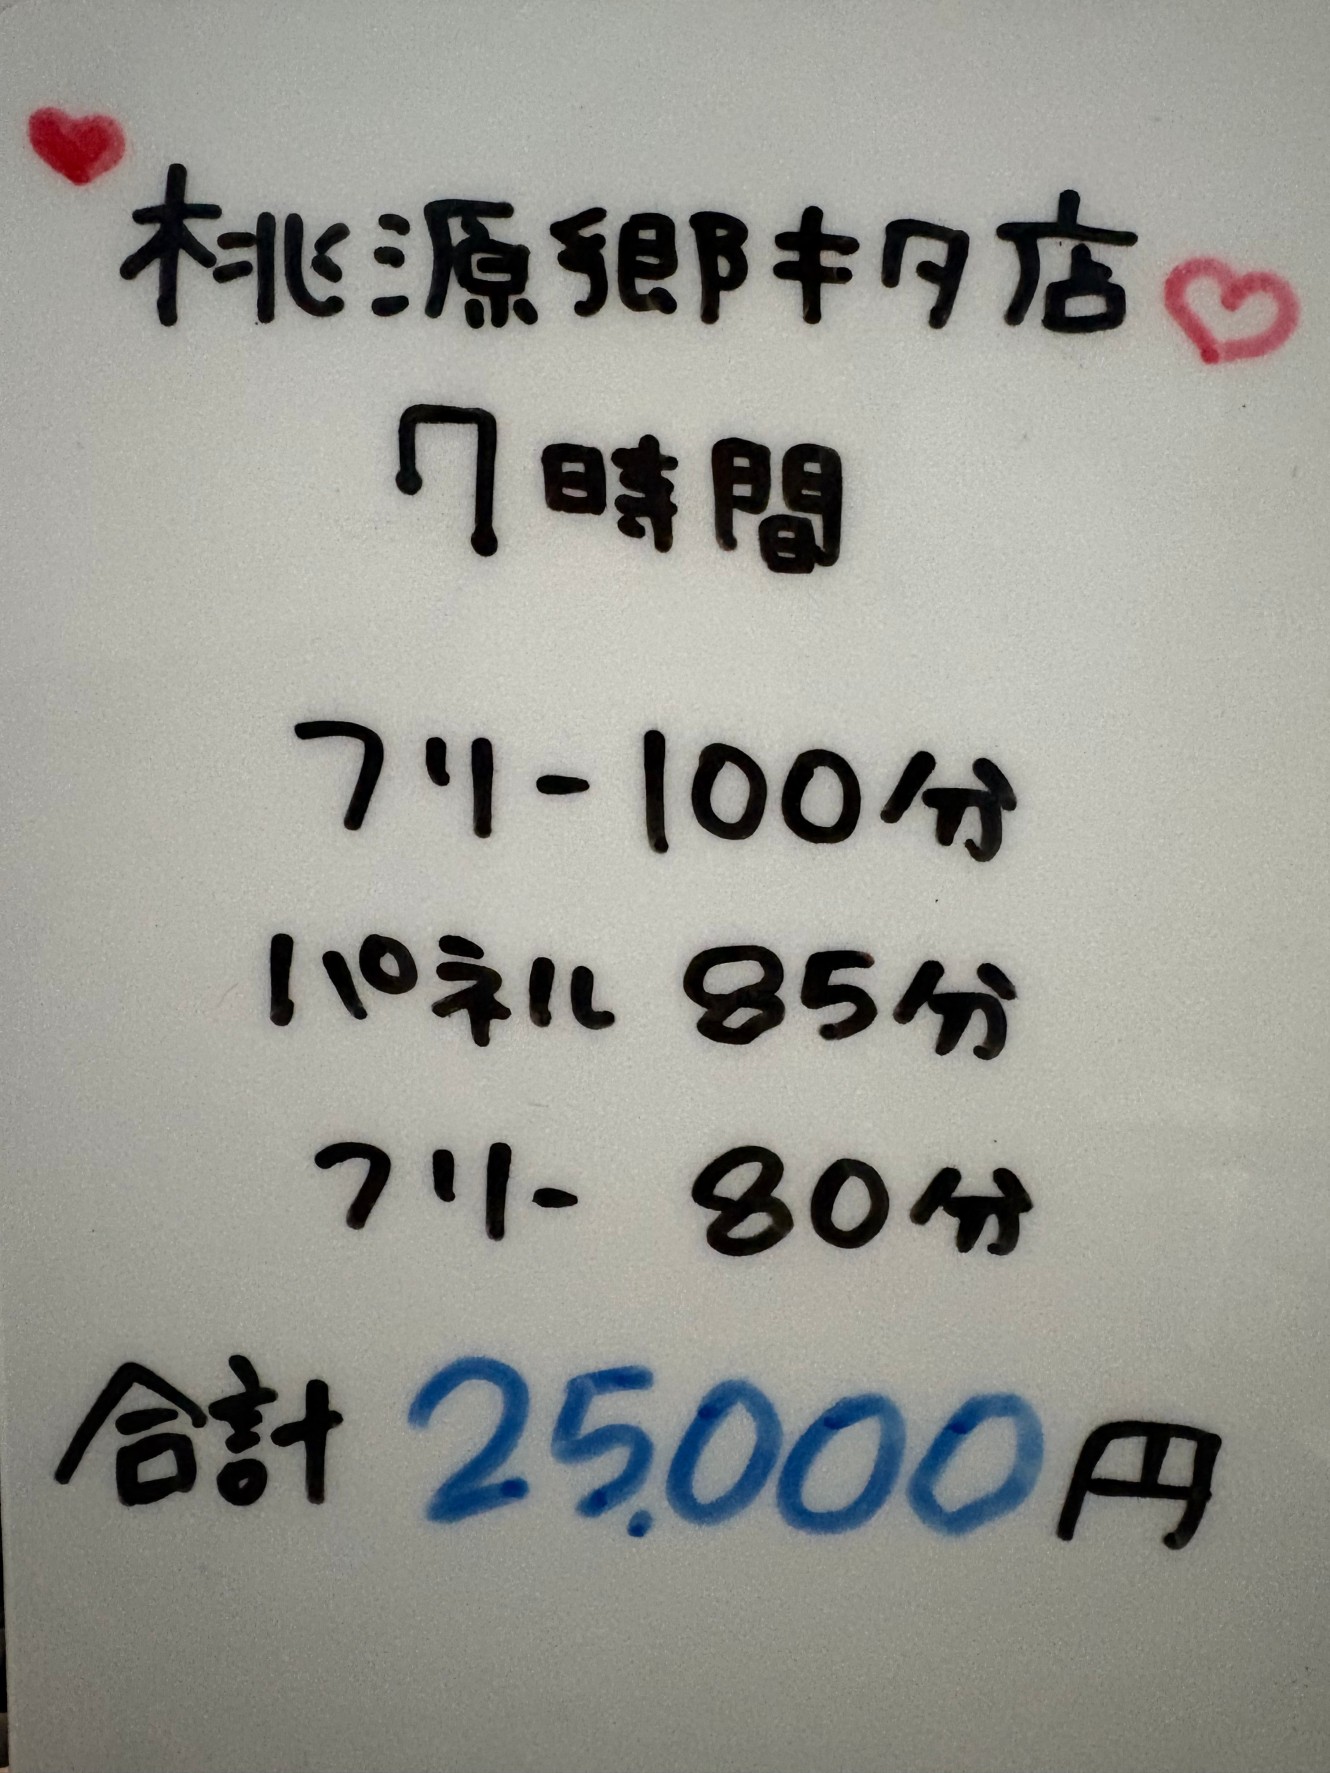 桃源郷キタ店
7時間
フリー100分
パネル 85分
フリー 80分
合計 25,000円